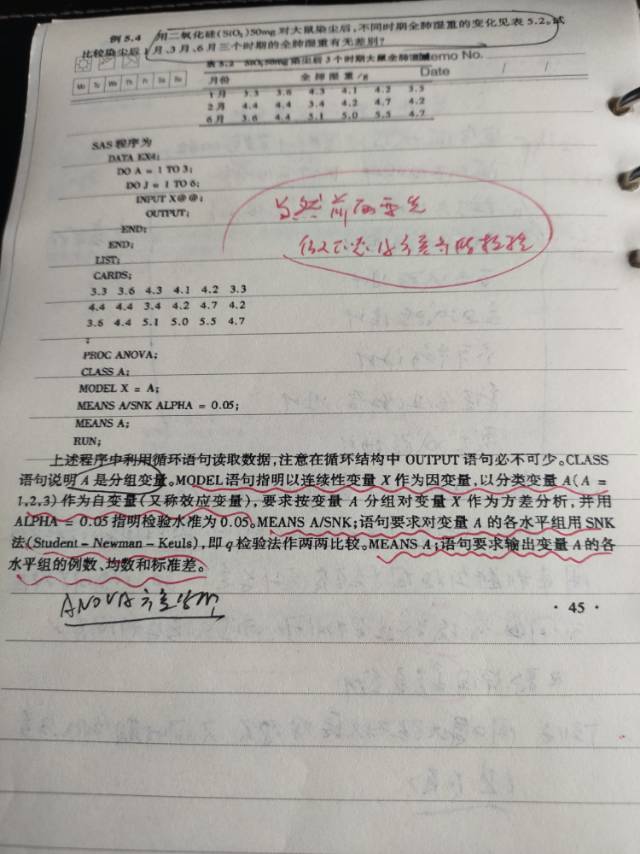 例5.4 用二氧化硅(SiO₂)50mg对大鼠染尘后,不同时期全肺湿重的变化见表5.2。试
比较染尘后1月、3月、6月三个时期的全肺湿重有无差别?
表5.2 SiO₂50mg染尘后3个时期大鼠全肺湿重
Memo No.
Date / /
Mo Tu We Th Fr Sa Su
月份 全肺湿重/g
1月 3.3 3.6 4.3 4.1 4.2 3.3
2月 4.4 4.4 3.4 4.2 4.7 4.2
6月 3.6 4.4 5.1 5.0 5.5 4.7
SAS程序为
DATA EX4;
DO A = 1 TO 3;
DO J = 1 TO 6;
INPUT X@@;
OUTPUT;
END;
END;
LIST;
CARDS;
3.3 3.6 4.3 4.1 4.2 3.3
4.4 4.4 3.4 4.2 4.7 4.2
3.6 4.4 5.1 5.0 5.5 4.7
;
PROC ANOVA;
CLASS A;
MODEL X = A;
MEANS A/SNK ALPHA = 0.05;
MEANS A;
RUN;
当然前面要先
上述程序中利用循环语句读取数据,注意在循环结构中OUTPUT语句必不可少。CLASS
语句说明A是分组变量。MODEL语句指明以连续性变量X作为因变量,以分类变量A(A =
1,2,3)作为自变量(又称效应变量),要求按变量A分组对变量X作为方差分析,并用
ALPHA = 0.05指明检验水准为0.05。MEANS A/SNK;语句要求对变量A的各水平组用SNK
法(Student-Newman-Keuls),即q检验法作两两比较。MEANS A;语句要求输出变量A的各
水平组的例数、均数和标准差。
ANOVA方差分析
· 45 ·